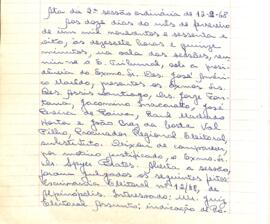 Ata da 2ª sessão ordinária de 12-2-68
Aos doze dias do mês de fevereiro
de um mil novecentos e sessenta e
oito, às dezesseis horas e quinze
minutos, na sala das sessões, reu-
niu-se o Tribunal, sob a presi-
dência do Exmo. Sr. Des. José Amé-
rico Macedo, presentes os Exmos. Srs.
Des. Assis Santiago, Drs. Jorge Fon-
tana, Jacomino Inacarato, José
Pereira de Paiva, Raul Machado
Horta e João Braz da Costa Val
Filho, Procurador Regional Eleitoral,
substituto. Deixou de comparecer,
por motivo justificado, o Exmo. Sr.
Dr. Sayer Pintos. Aberta a sessão,
foram julgados os seguintes feitos:
Escrivania Eleitoral nº 14/68, de
Alpinópolis. Interessado: MM. Juiz
Eleitoral. Assunto: indicação de es-